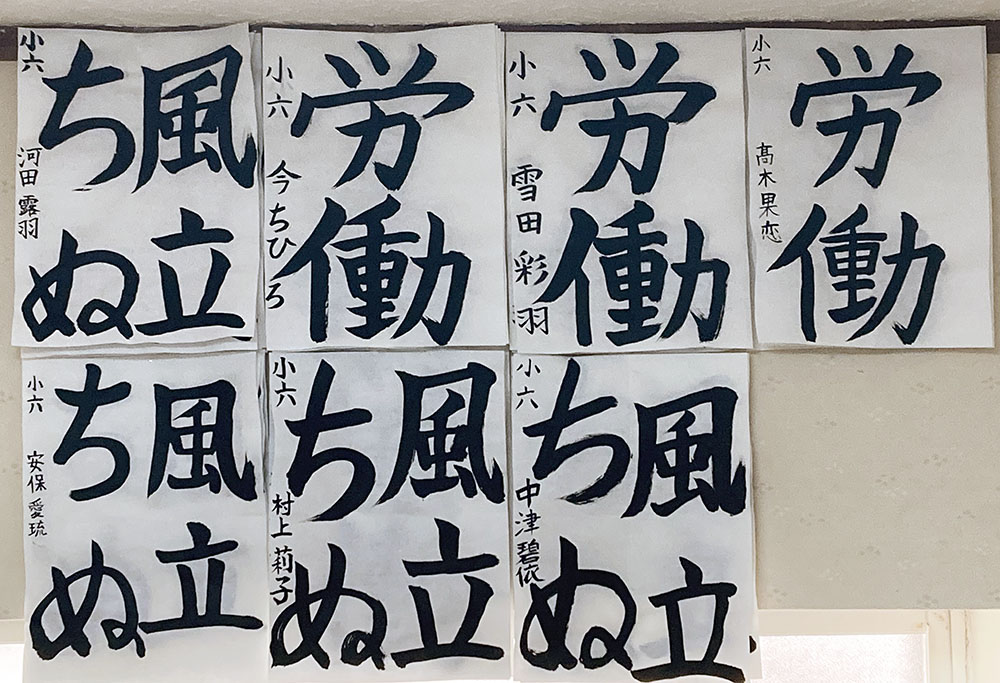 風立
ちぬ
小六 河田 露羽
労働
小六 今 ちひろ
労働
小六 雪田 彩羽
労働
小六 髙木果恋
風立
ちぬ
小六 安保愛琉
風立
ちぬ
小六 村上莉子
風立
ちぬ
小六 中津碧依